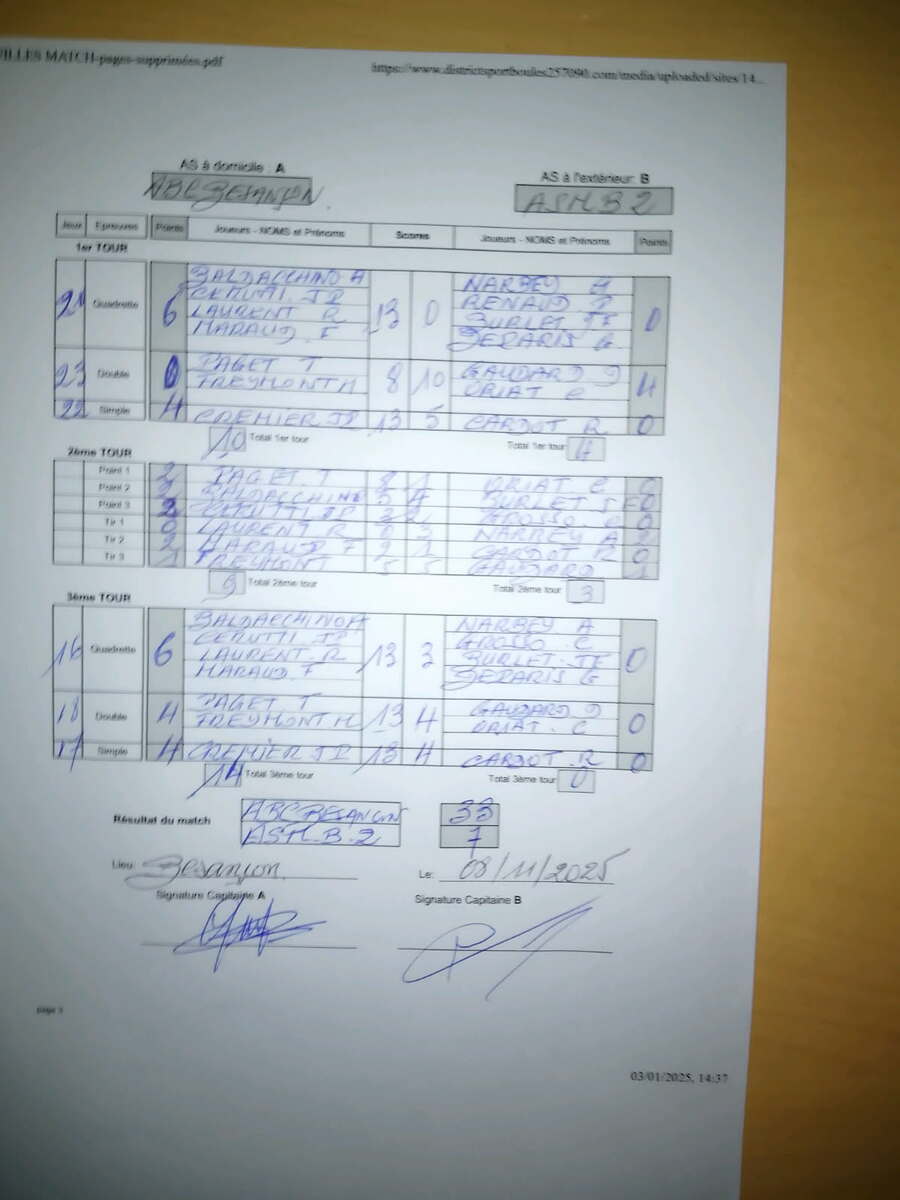 VILLES MATCH-pages-supprimées.pdf https://www.districtsportboules257090.com/media/uploaded/sites/14...
AS à domicile : A AS à l'extérieur: B
ABC BESANÇON. ASMB 2
Jeux Epreuves Points Joueurs - NOMS et Prénoms Scores Joueurs - NOMS et Prénoms Points
1er TOUR
21 Quadrette 6 13 0 0
BALDACCHINO A NARBEY A
CERUTTI JP RENAUD
LAURENT R BURLET
MARAUD F DEPARIS G.
23 Double 0 8 10 4
PAGET T GAUDARD D
TREYMONT M ORIAT C
22 Simple 4 CREMIER JP 13 5 CARDOT R 0
10 Total 1er tour Total 1er tour 4
2ème TOUR
Point 1 2 PAGET. T ORIAT C
Point 2 BALDACCHINO 5 4 BURLET
Point 3 2 CERUTTI JP GROSSO. C
Tir 1 0 LAURENT R NARBEY A 2
Tir 2 MARAUD F CARDOT R 0
Tir 3 1 TREYMONT 5 5 GAUDARD 1
9 Total 2ème tour Total 2ème tour 3
3ème TOUR
16 Quadrette 6 13 3 0
BALDACCHINO A NARBEY A
CERUTTI JP GROSSO . C
LAURENT R BURLET.
MARAUD. F DEPARIS G
18 Double 4 13 4 0
PAGET T GAUDARD D
TREYMONT M ORIAT. C
17 Simple 4 CREMIER JP 13 4 CARDOT . R 0
14 Total 3ème tour Total 3ème tour 0
Résultat du match
ABC BESANÇON 33
ASM.B.2 7
Lieu: Besançon. Le: 08/11/2025
Signature Capitaine A Signature Capitaine B
page 3
03/01/2025, 14:37